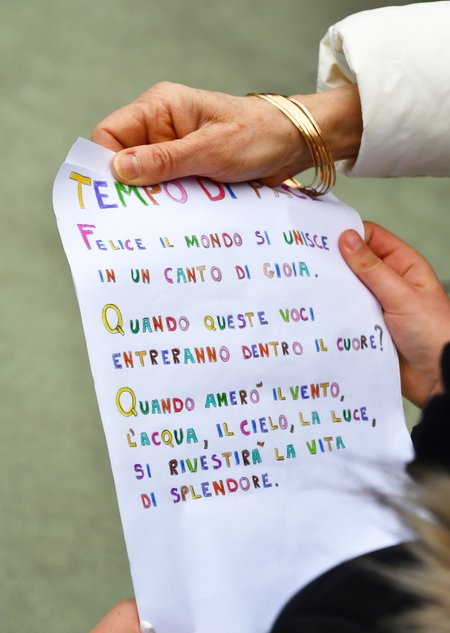 TEMPO DI
FELICE IL MONDO SI UNISCE
IN UN CANTO DI GIOIA.
QUANDO QUESTE VOCI
ENTRERANNO DENTRO IL CUORE?
QUANDO AMERÒ IL VENTO,
L'ACQUA, IL CIELO, LA LUCE,
SI RIVESTIRÀ LA VITA
DI SPLENDORE.